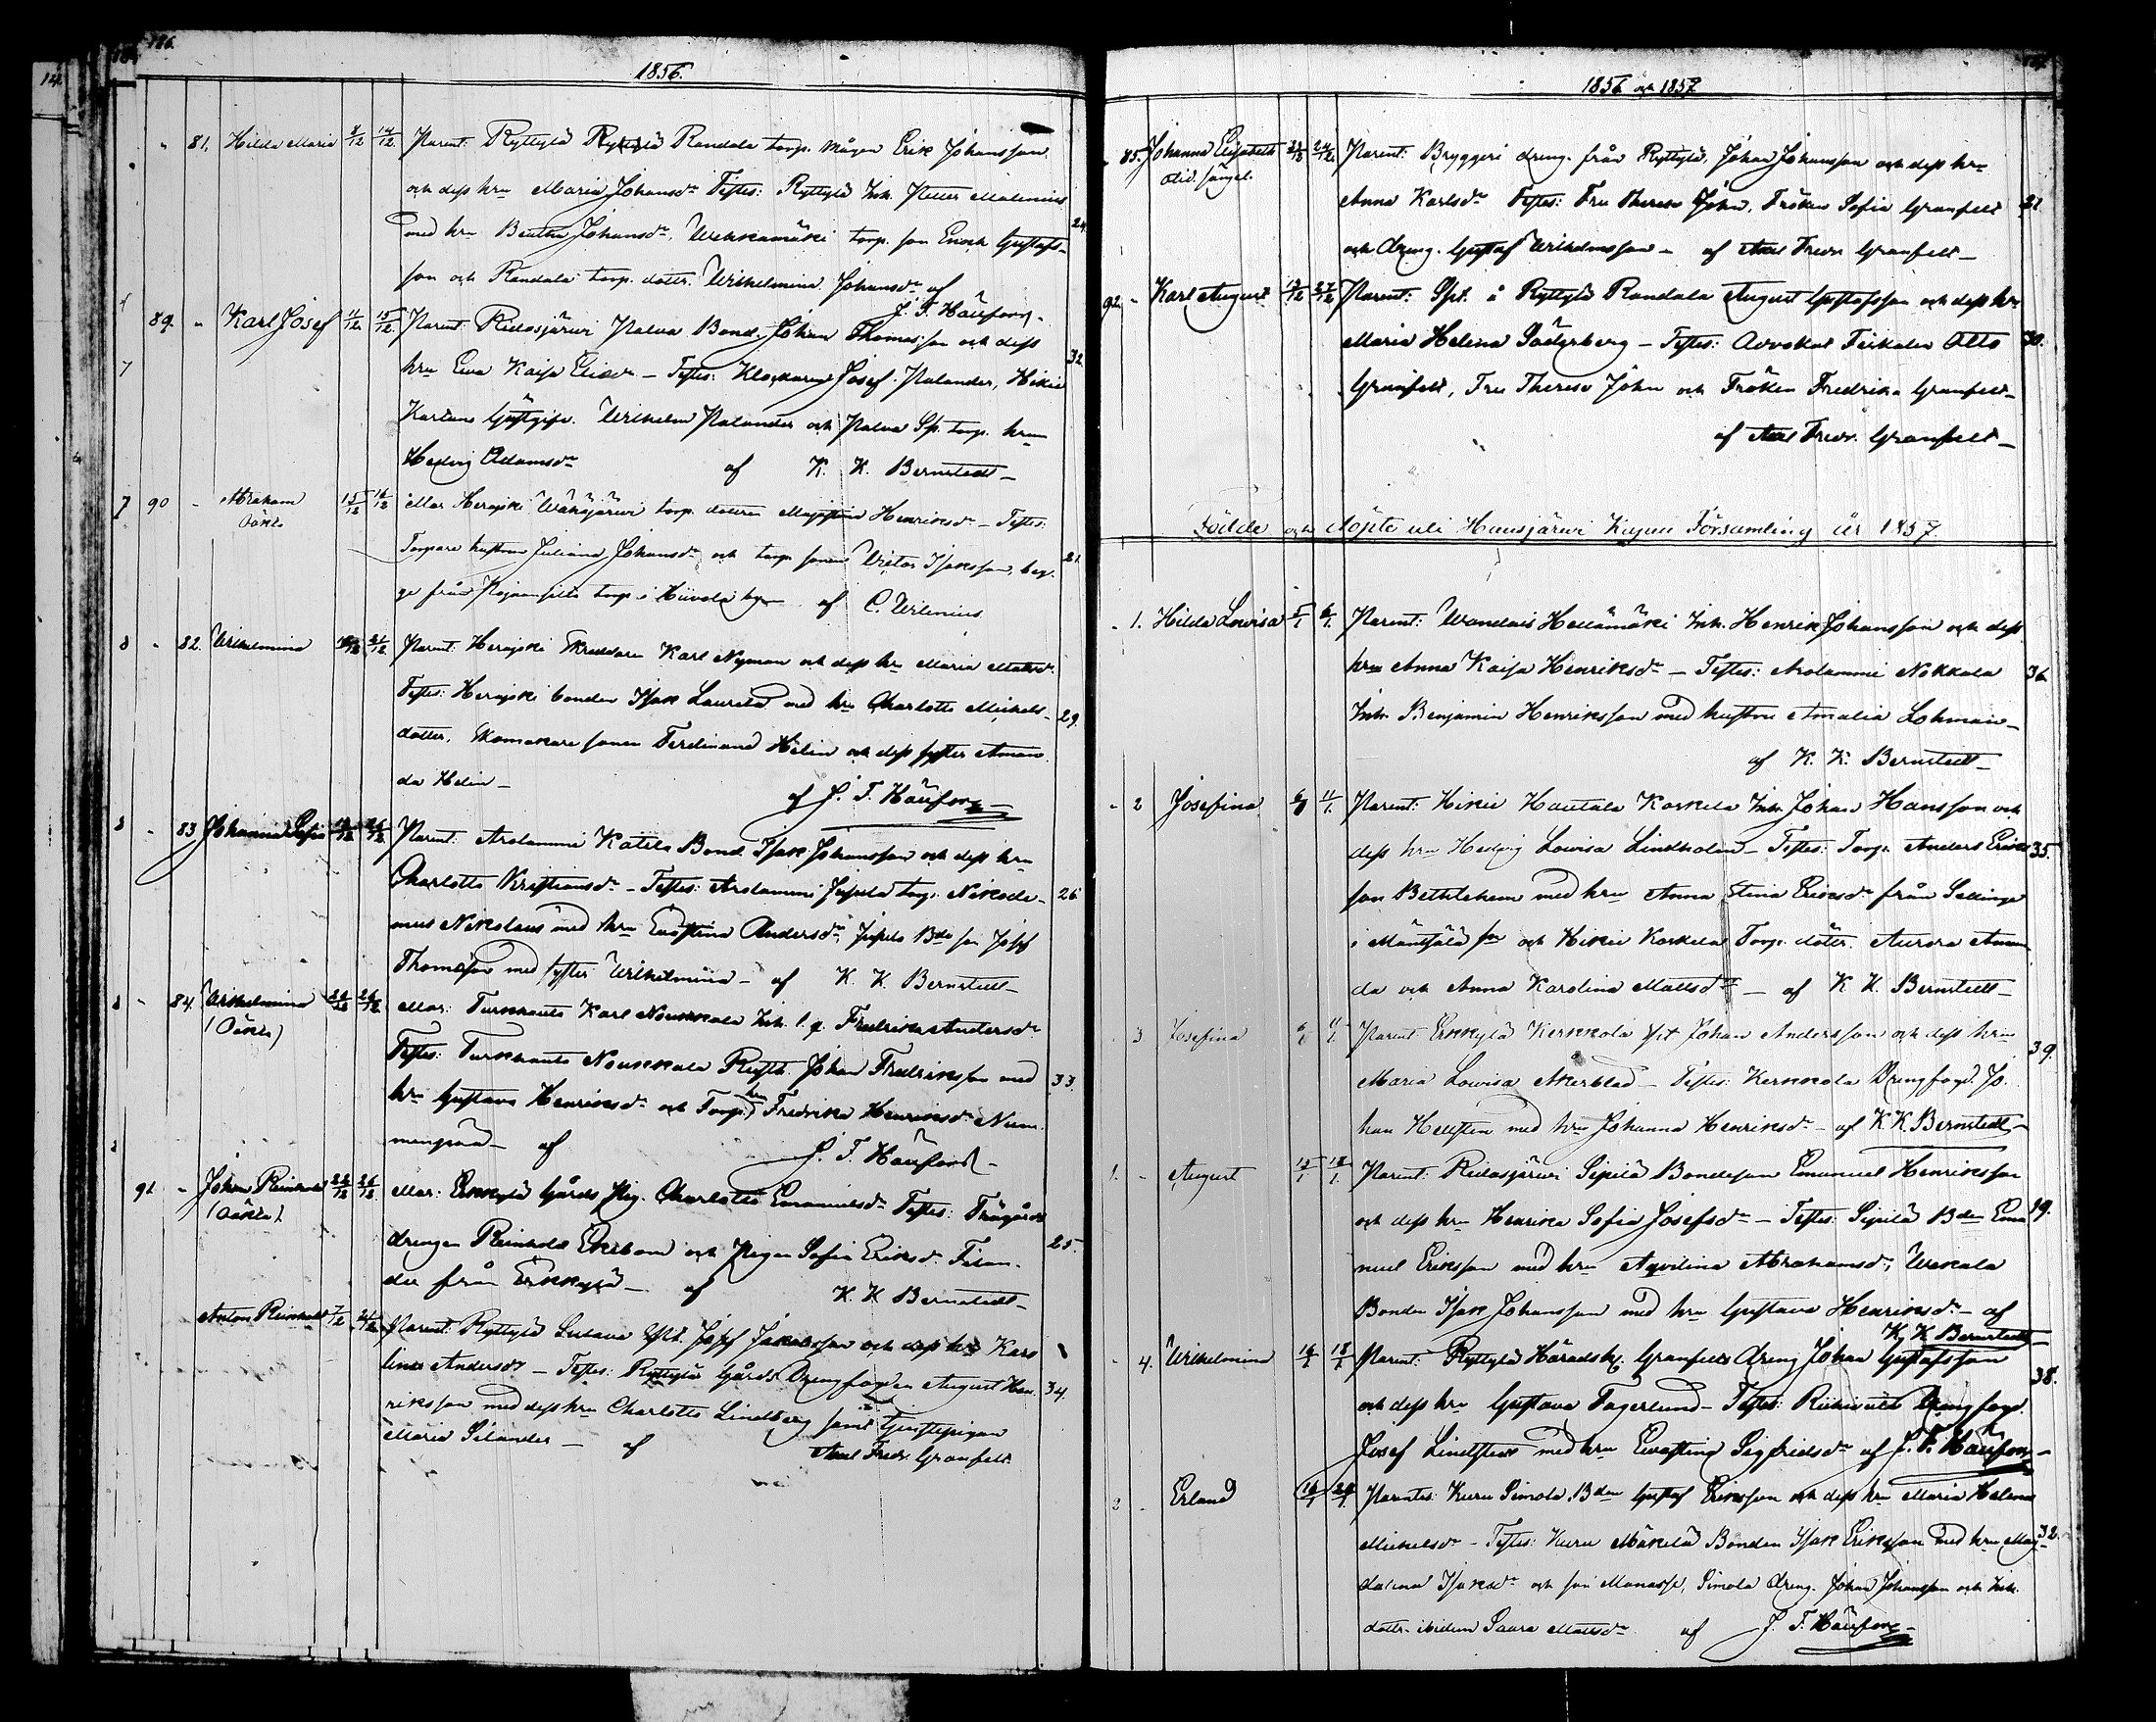 186.
1856.
81. Hilda Maria 8/12 14/12 Parent: Ryttylä Randala torp. mågen Erik Johansson
och dess hru Maria Johansdr Testes: Ryttylä Inh. Petter Malenius
med hru Johansdr, torp. son Enoch Gustafs-
24.
son och Randala torp. dottr. Wilhelmina Johansdr af
J. F. Häufors
89. Karl Josef 11/12 15/12 Parent: Ridasjärwi Palva Bond. Johan Thomasson och dess
32.
hru Ewa Kaisa - Testes: Klockaren Josef Palander, Hikiä
Gästgifv. Wilhelm Palander och Palva torp. hrun
Hedvig Adamsdr af K. K. Bernstedt
7 90 Abraham 15/12 16/12 Mar Herajoki Wähäjärwi torp. dottren Henriksdr - Testes:
Oäkta
Torpare hustrun Juliana Johansdr och torp. sonen Victor Isaksson, bäg-
21.
ge från torp i Hiivola by af C. Wilenius
8 82. Wilhelmina 21/12 Parent: Herajoki Skreddare Karl Nyman och dess hru Maria Mattsdr
Testes: Herajoki bonden Isak Laurila med hru Charlotta Michels-
29.
dotter, Skomakare sonen Ferdinand Helin och dess syster Aman
da Helin af J. F. Häufors
8 83 Johanna Sofia 26/12 Parent: Arolammi Katila Bond. Isak Johansson och dess hru
Charlotta Kristiansdr - Testes: Arolammi torp. Nikode-
26.
mus Nikolaus med hru Ewastina Andersdr, son Josef
Thomasson med syster Wilhelmina - af K. K. Bernstedt
8 84. Wilhelmina 26/12 Mar: Turkhauta Karl Noukkala Inh. Fredrika Andersdr
(Oäkta)
Testes: Turkhauta Noukkala Rusth. Johan Fredriksson med
33.
hru Gustava Henriksdr och Torp. hru Fredrika Henriksdr Num
menpää af J. F. Häufors
91 Johan Reinhold 26/12 Mar: Erkkylä Gårds Pig. Charlotta Emanuelsdr Testes: Trägårds
(Oäkta)
drengen Reinhold Ekebom och Pigan Sofia Eriksdr
25.
från Erkkylä af K. K. Bernstedt
Anton Reinhold 7/12 Parent: Ryttylä Josef Jakobsson och dess hru Karo
lina Andersdr - Testes: Ryttylä Gårds Drengfogden August Hen-
34.
riksson med dess hru Charlotta Lindberg samt tjenstepigan
Maria Silander af Axel Fredr. Granfelt
1856 och 1857
85. Johanna Elisabeth 24/12 Parent: Bryggeri dreng. från Ryttylä, Johan Johansson och dess hru
Anna Karlsdr Testes: Fru Therese John, Fröken Sofia Granfelt
21
och dreng. Gustaf Wilhelmsson - af Axel Fredr. Granfelt
92. Karl August 27/12 Parent: å Ryttylä Randala August Gustafsson och dess hru
Maria Helena Söderberg - Testes: Advokat Fiskalen Otto
30.
Granfelt, Fru Therese John och Fröken Fredrika Granfelt
af Axel Fredr. Granfelt
Födde och döpte uti Hausjärwi Församling år 1857.
1. Hilda Lovisa 5/1 6/1 Parent: Inh. Henrik Johansson och dess
hru Anna Kaisa Henriksdr - Testes: Arolammi Nokkala
36
Inh. Benjamin Henriksson med hustru Amalia Lohman
af K. K. Bernstedt
2 Josefina 11/1 Parent: Hikiä Hautala Korkela Inh. Johan Hansson och
dess hru Hedvig Lovisa Lindholm - Testes: Torp. Anders Eriks
35.
son Bethlehem med hru Anna Stina Eriksdr från Sälinge
i Mäntsälä sn och Hikiä Korkela Torp. döttr. Aurora Aman
da och Anna Karolina Mattsdr - af K. K. Bernstedt
3 Josefina 6/1 11/1 Parent: Erkkylä Kerkkola Johan Andersson och dess hru
39.
Maria Lovisa Åkerblad - Testes: Kerkkola Drengfogd. Jo-
han Hellsten med hru Johanna Henriksdr - af K. K. Bernstedt
1. August 15/1 18/1 Parent: Ridasjärwi Sipilä Bondeson Emanuel Henriksson
och dess hru Henrika Sofia Josefsdr - Testes: Sipilä Bden Ema
29.
nuel Eriksson med hru Aqvilina Abrahamsdr, Wekala
Bonden Isak Johansson med hru Gustava Henriksdr - af
K. K. Bernstedt
4. Wilhelmina 16/1 18/1 Parent: Ryttylä Häradsh. Granfelts Dreng Johan Gustafsson
38.
och dess hru Gustava Fagerlund - Testes: Drengfogd.
Josef Lindsten med hru Ewastina Sigfridsdr af J. F. Häufors
2 Erland 16/1 Parentes: Kuru Simola Bden Gustaf Eriksson och dess hru Maria Helena
Michelsdr - Testes: Kuru Mäkelä Bonden Isak Eriksson med hru Mag-
32.
dalena Isaksdr och son Manasse, Simola dreng. Johan Johansson och Inh.
dottr. ibidem Saara Mattsdr af J. F. Häufors